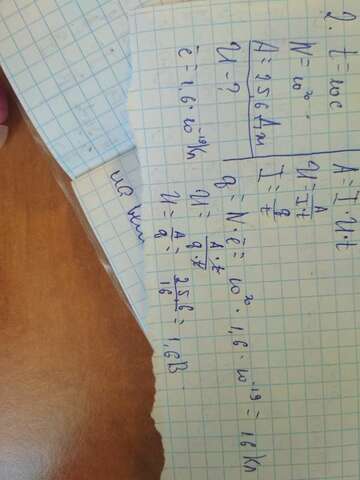 2. t = 10c
N = 10²⁰
A = 256 Дж
U - ?
ē = 1,6 · 10⁻¹⁹ Кл
A = I · U · t
U = A/It
I = q/t
q = N · ē = 10²⁰ · 1,6 · 10⁻¹⁹ = 16 Кл
U = A · t/q · t
U = A/q = 256/16 = 1,6 В
на